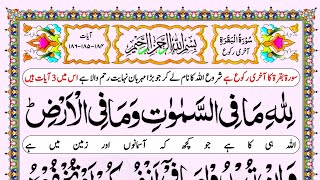 سُوْرَةُ الْبَقَرَة
آخری رکوع
بِسْمِ اللهِ الرَّحْمٰنِ الرَّحِيْمِ
آیات
۲۸۴-۲۸۵-۲۸۶
سورۃ بقرۃ کا آخری رکوع ہے شروع اللہ کا نام لے کر جو بڑا مہربان نہایت رحم والا ہے اس میں 3 آیات ہیں
لِلّٰهِ مَا فِي السَّمٰوٰتِ وَمَا فِي الْاَرْضِ ط
اللہ ہی کا ہے جو کچھ کہ آسمانوں اور زمین میں ہے